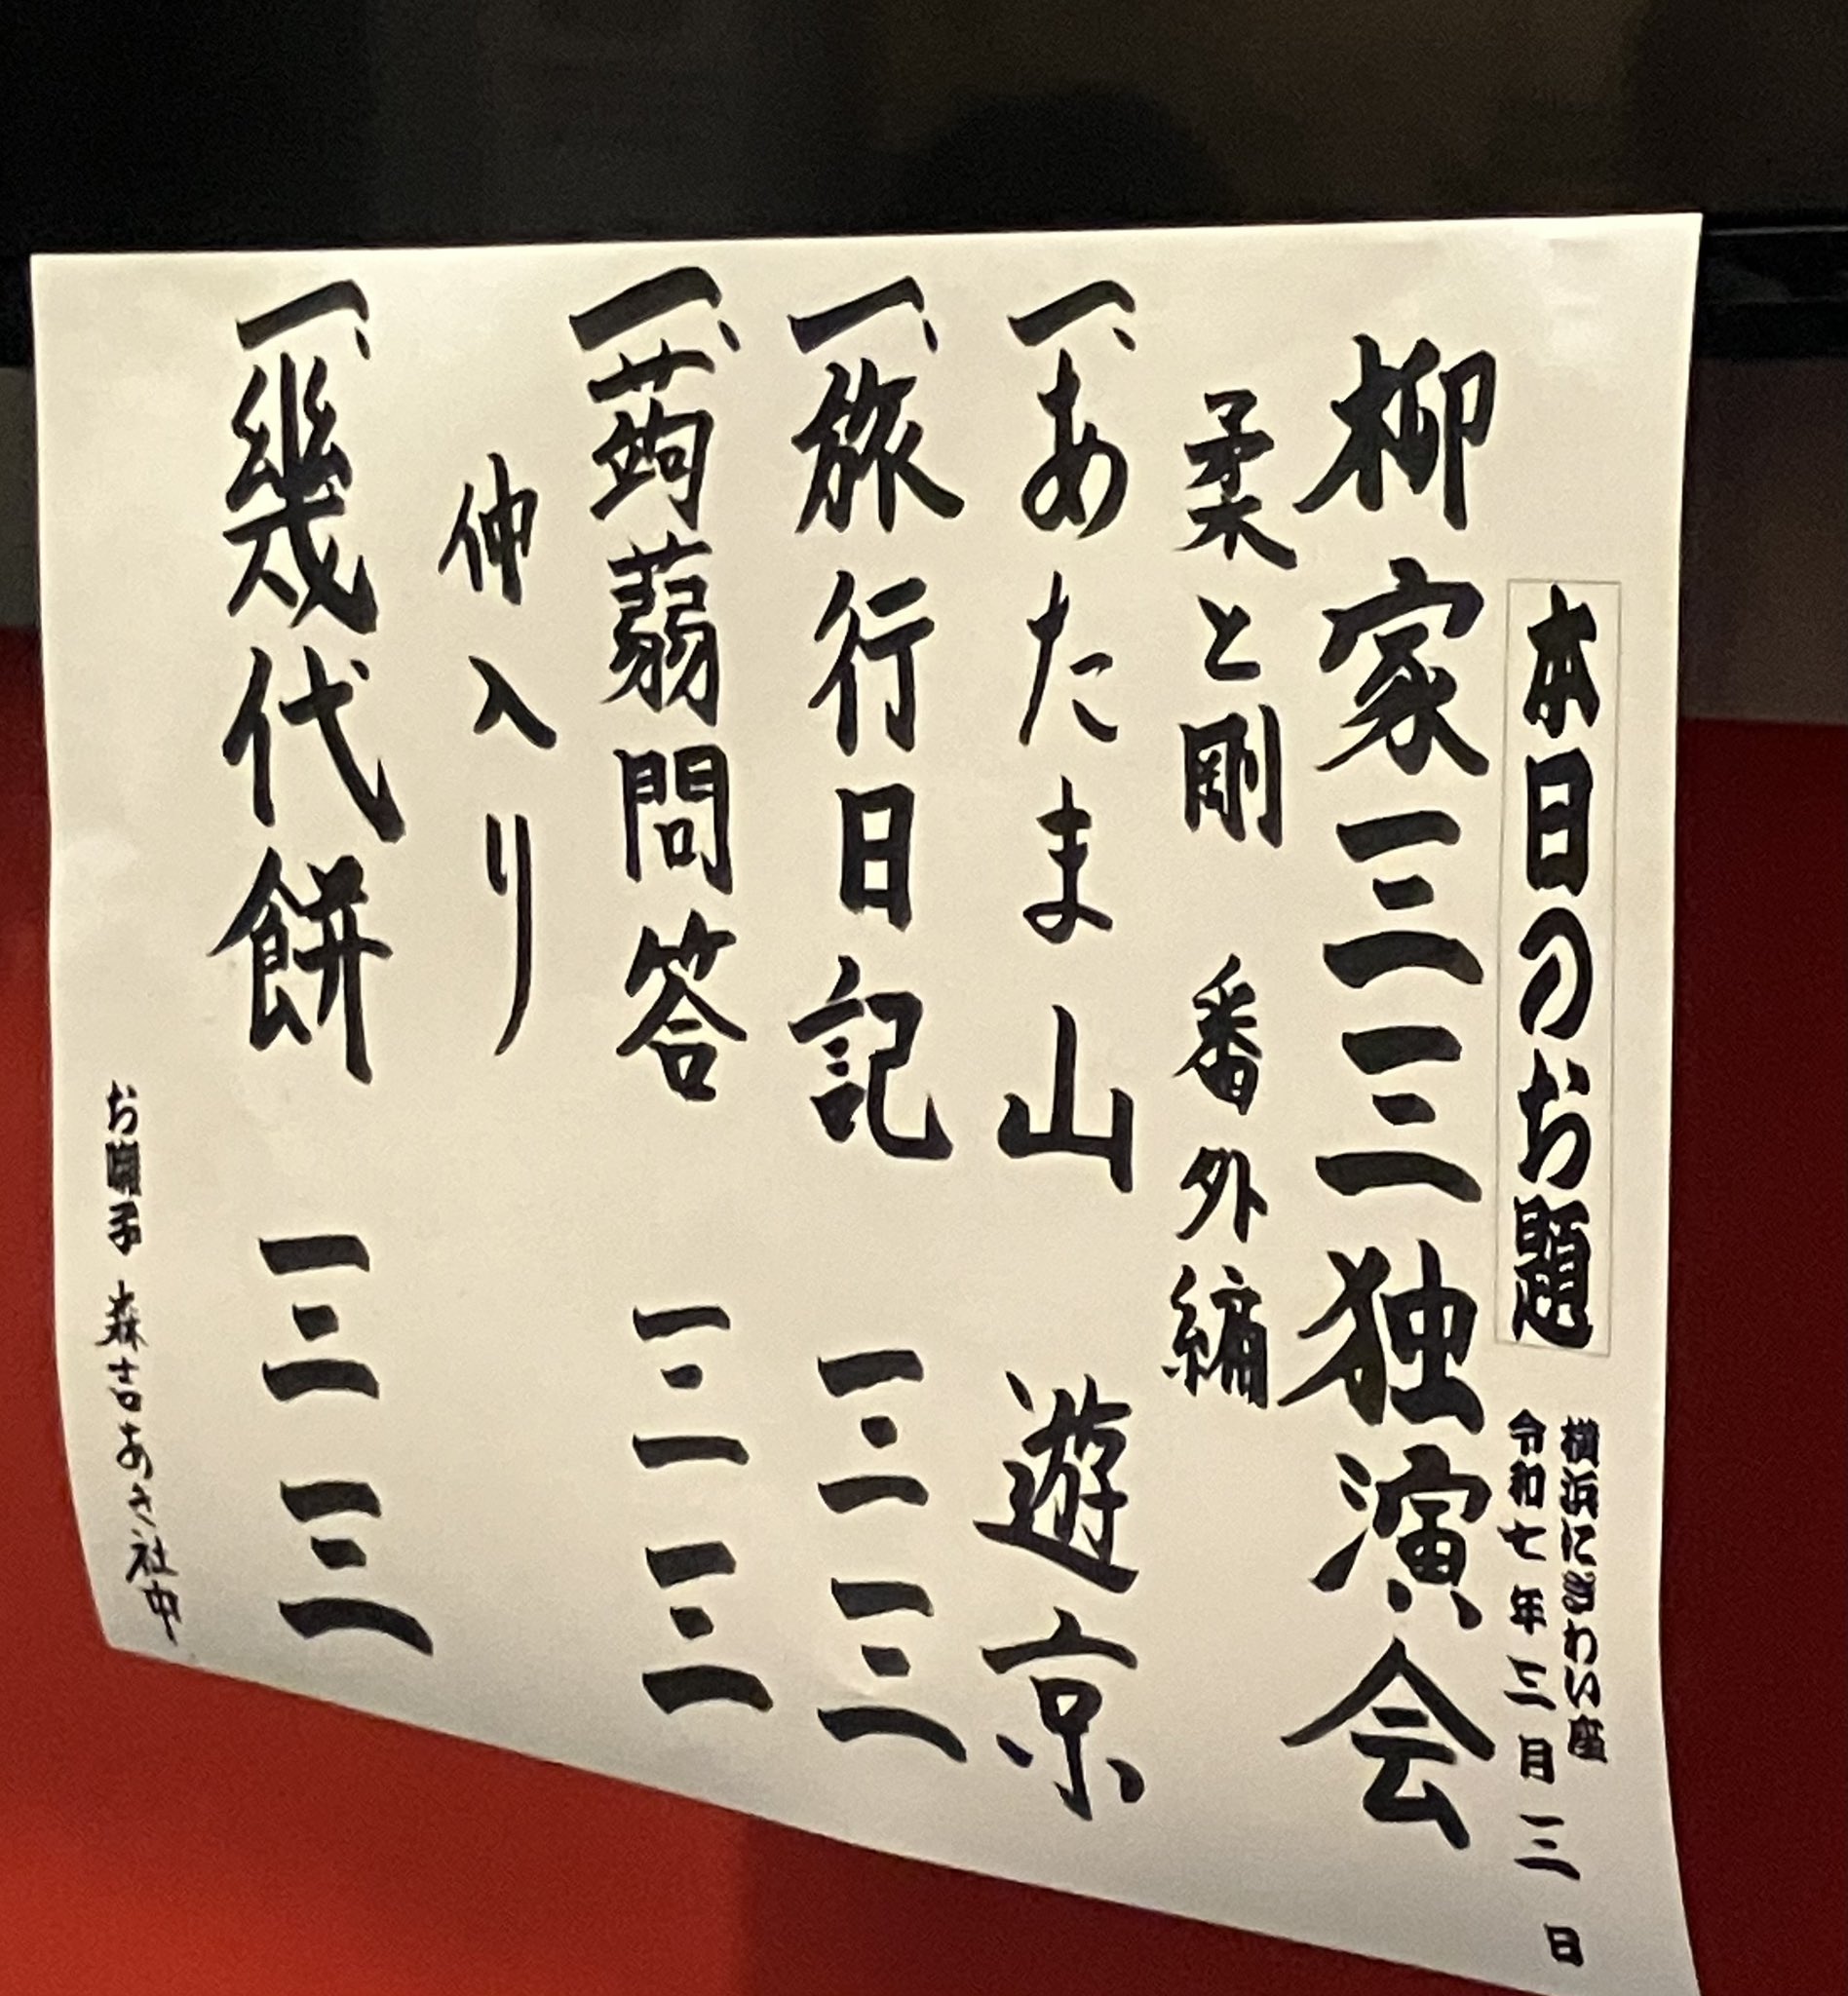 本日のお題
横浜にぎわい座
令和七年三月三日
柳家三三独演会
柔と剛 番外編
一、あたま山 遊京
一、旅行日記 三三
一、蒟蒻問答 三三
仲入り
一、幾代餅 三三
お囃子 森吉あき社中